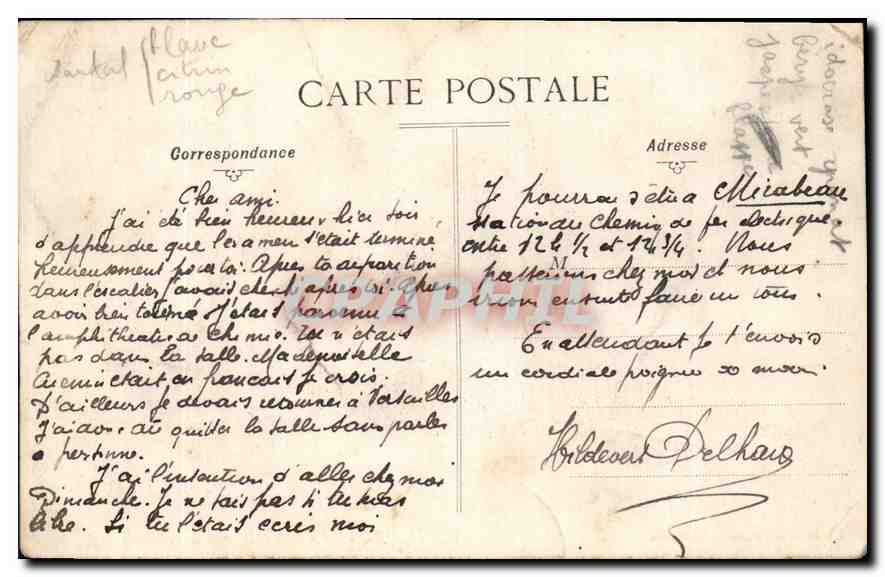 CARTE POSTALE
Correspondance
Cher ami.
J'ai été bien heureux hier soir
d'apprendre que l'examen s'était terminé
heureusement pour toi. Après ta disparition
dans l'escalier j'avais cherché après toi. Après
avoir bien tourné j'étais parvenu à
l'amphithéatre de chimie. Tu n'étais
pas dans la salle. Mademoiselle
était en français je crois.
D'ailleurs je devais retourner à Versailles
J'ai donc dû quitter la salle sans parler
à personne.
J'ai l'intention d'aller chez moi
Dimanche. Je ne sais pas si tu seras
libre. Si tu l'étais écris moi
Adresse
Je pourrais être à Mirabeau
station du chemin de fer électrique
entre 12h 1/2 et 12h 3/4. Nous
M
passerions chez moi et nous
irions ensuite faire un tour.
En attendant je t'envoie
une cordiale poignée de main.
Hildevert Delhaye
flave
citrin
rouge
vert
CPAPHIL